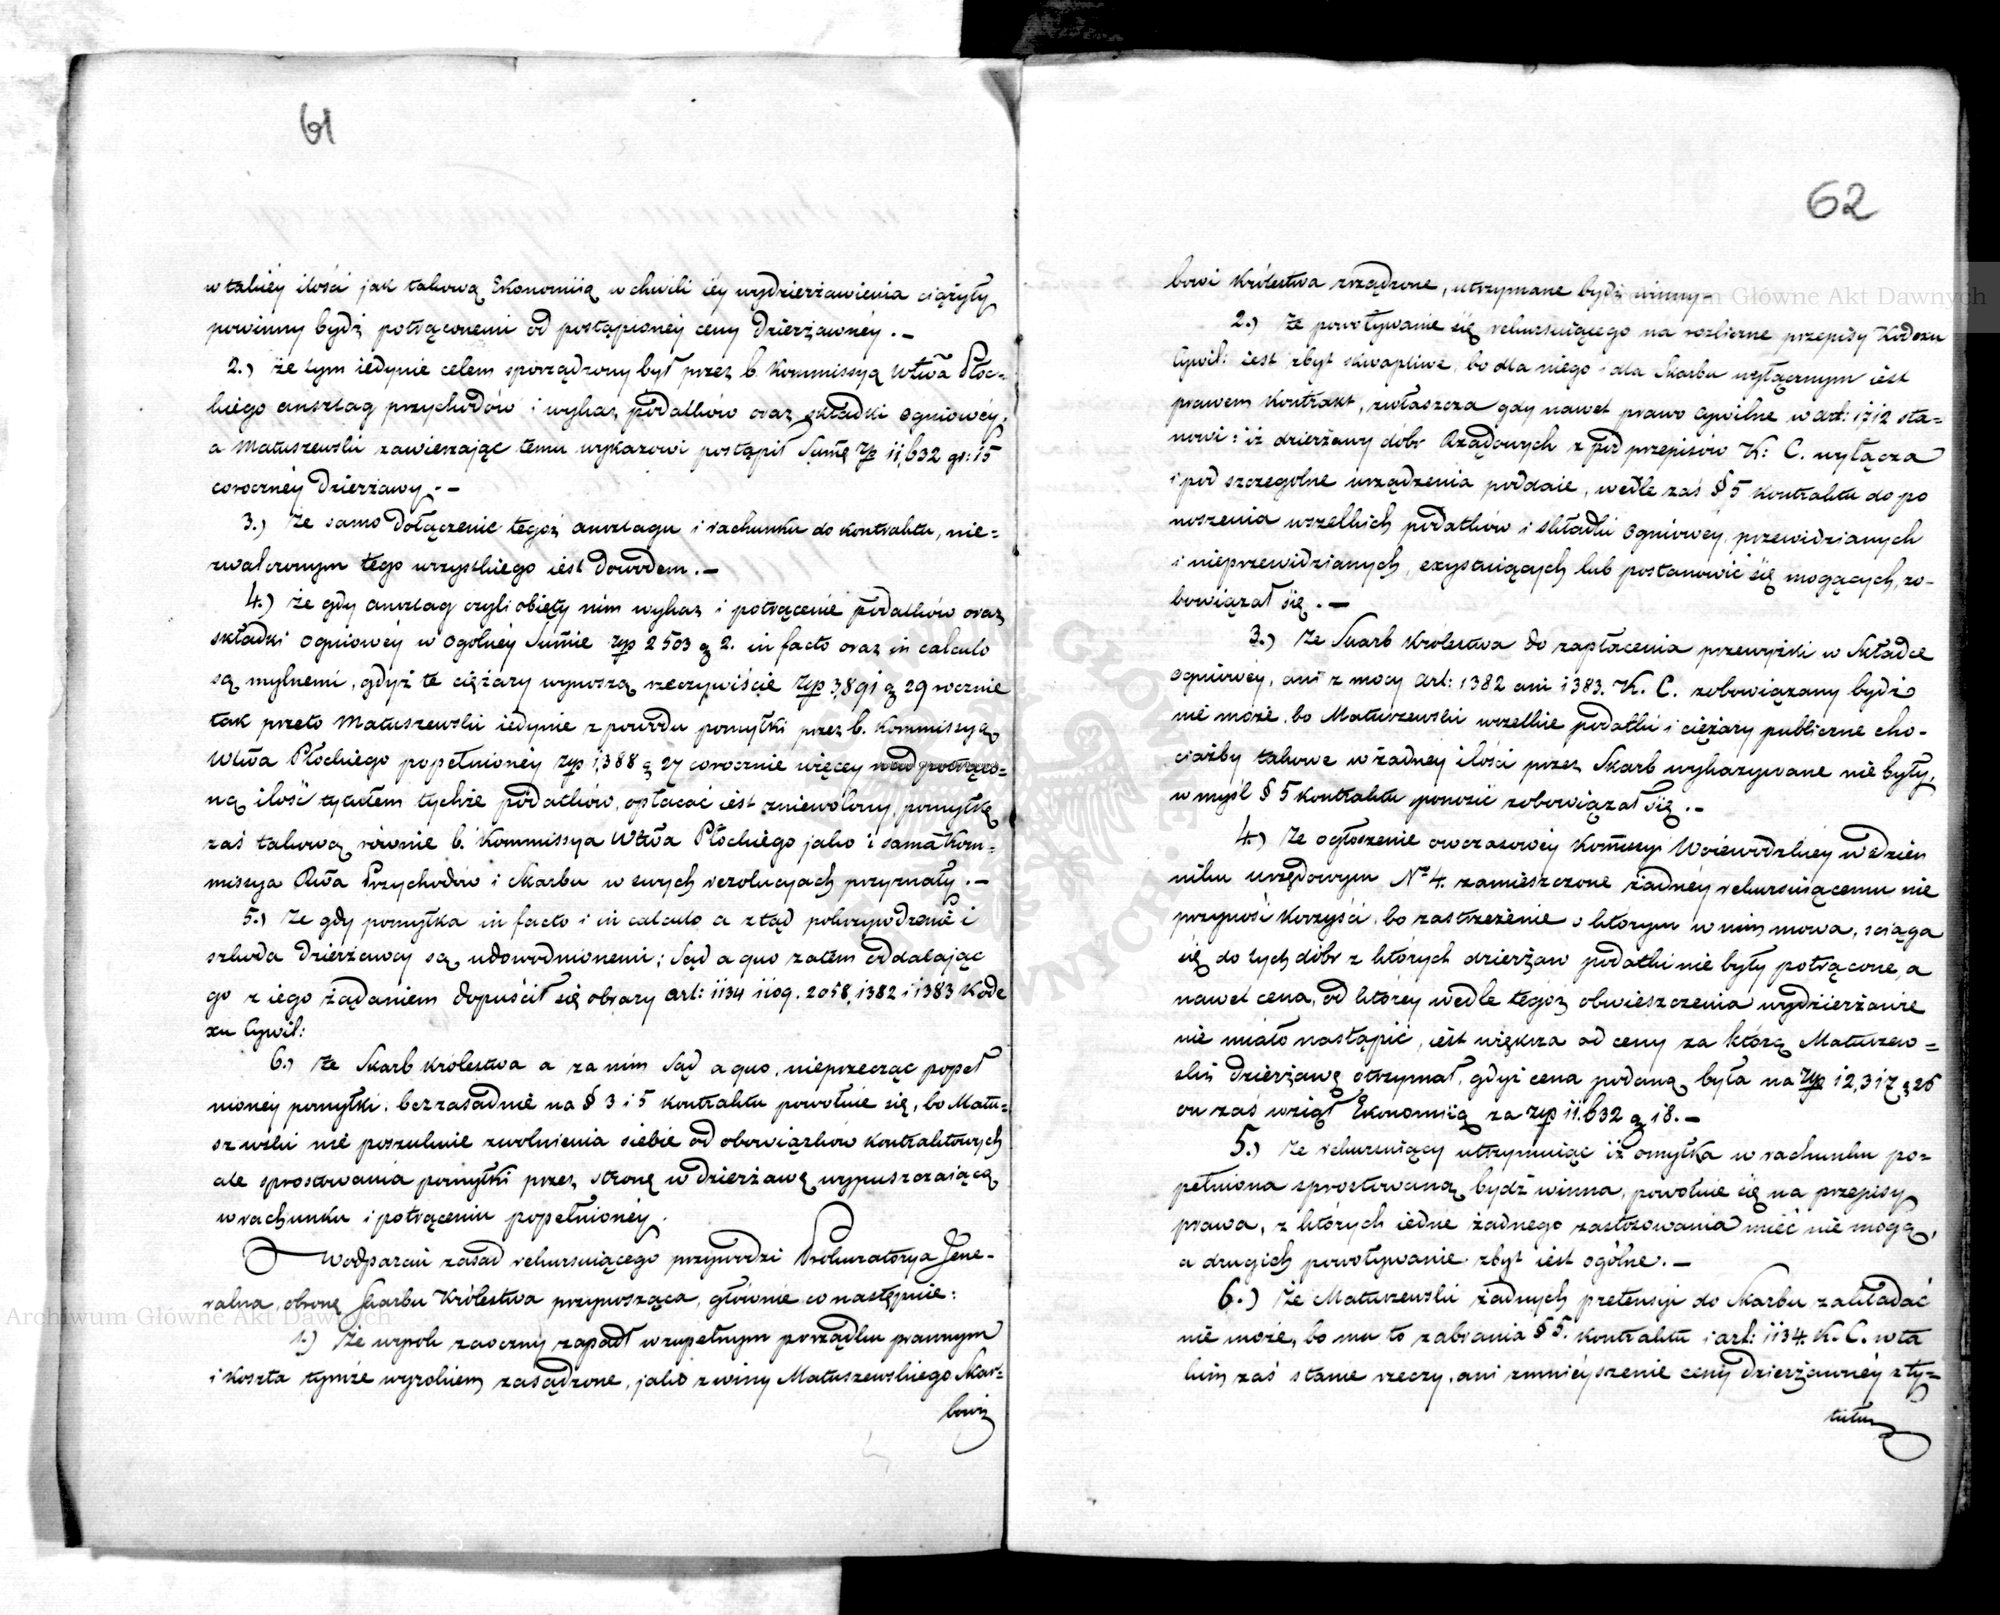 61
w takiéy ilości jak takową Ekonomiią w chwili iéy wydzierżawienia ciążyły
powinny bydź potrąconemi od postąpionéy ceny Dzierżawnéy. —
2.) że tym iedynie celem sporządzony był przez b. Kommissyą Wttwa Płoc-
kiego anszlag przychodów i wykaz podatków oraz składki ogniowéy,
a Matuszewski zawierzając temu wykazowi postąpił Summę Zp 11,632 gr: 15
coroczney Dzierżawy. —
3.) że samo Dołączenie tegoż anszlagu i rachunku do kontraktu, nie=
zwalczonym tego wszystkiego iest Dowodem. —
4.) że gdy anszlag czyli obięty nim wykaz i potrącenie podatków oraz
składki ogniowéy w ogolnéy Summie Zp 2503 g 2. in facto oraz in calculo
są mylnemi, gdyż te ciężary wynoszą rzeczywiście Zp 3,891 g 29 rocznie
tak przeto Matuszewski iedynie z powodu pomyłki przez b. Kommissyą
Wttwa Płockiego popełnionéy Zp 1,388 g 27 corocznie więcey nad potrąco=
ną ilość tytułem tychże podatków, opłacać iest zniewolony, pomyłkę
zaś takową równie b. Kommissya Wttwa Płockiego jako i sama Kom=
missya Rwa Przychodów i Skarbu w swych rezolucyach przyznały. —
5.) że gdy pomyłka in facto i in calculo a ztąd pokrzywdzenie i
szkoda Dzierżawcy są udowodnionemi; Sąd a quo zatem oddalając
go z iego żądaniem dopuścił się obrazy art: 1134 1109. 2058, 1382 i 1383 Kode
xu Cywil:
6.) że Skarb Królestwa a za nim Sąd a quo, nieprzecząc popeł
nionéy pomyłki, bezzasadnie na § 3 i 5 kontraktu powołuie się, bo Matu=
szewski nie poszukuie zwolnienia siebie od obowiązków kontraktowych
ale sprostowania pomyłki przez stronę w Dzierżawę wypuszczaiącą
w rachunku i potrąceniu popełnionéy.
W odparciu zasad rekursuiącego przywodzi Prokuratorya Jene-
ralna, obronę Skarbu Królestwa przynosząca, głównie co następuie:
1.) że wyrok zaoczny zapadł w zupełnym porządku prawnym
i koszta tymże wyrokiem zasądzone, jako z winy Matuszewskiego Skar=
bowi
62
bowi Królestwa zrządzone, utrzymane bydź winny —
2.) że powoływanie się rekursuiącego na rozliczne przepisy Kodexu
Cywil: iest zbyt skwapliwe, bo dla niego i dla Skarbu wyłącznym iest
prawem Kontrakt, zwłaszcza gdy nawet prawo Cywilne w art: 1712 sta=
nowi: iż dzierżawy dóbr Rządowych z pod przepisów K: C. wyłącza
i pod szczegolne urządzenia poddaie, wedle zaś § 5 Kontraktu do po
noszenia wszelkich podatków i składki Ogniowéy, przewidzianych
i nieprzewidzianych, exystuiących lub postanowić się mogących, zo-
bowiązał się. —
3.) że Skarb Królestwa do zapłacenia przewyżki w Składce
ogniowéy, ani z mocy art: 1382 ani 1383. K. C. zobowiązany bydź
nie może, bo Matuszewski wszelkie podatki i ciężary publiczne cho-
ciażby takowe w żadney ilości przez Skarb wykazywane nie były,
w myśl § 5 kontraktu ponosić zobowiązał się. —
4.) że ogłoszenie owczasowéy Kommissyi Woiewódzkiéy w dzien
niku urzędowym No 4. zamieszczone żadnéy rekursuiącemu nie
przynosi korzyści, bo zastrzeżenie o którym w nim mowa, sciąga
się do tych dóbr z których dzierżaw podatki nie były potrącone, a
nawet cena, od któréy wedle tegoż obwieszczenia wydzierżawie
nie miało nastąpić, iest większa od ceny za którą Matuszew=
ski dzierżawę otrzymał, gdyż cena podaną była na Zp 12,317 g 26
on zaś wziął Ekonomiią za Zp 11.632 g 18. —
5.) że rekursuiący utrzymuiąc iż omyłka w rachunku po=
pełniona sprostowaną bydź winna, powołuie się na przepisy
prawa, z których iedne żadnego zastosowania mieć nie mogą,
a drugich powoływanie zbyt iest ogólne. —
6.) że Matuszewski żadnych pretensyi do Skarbu zakładać
nie może, bo mu to zabrania § 5. kontraktu i art: 1134. K. C. w ta
kim zaś stanie rzeczy, ani zmnieyszenie ceny Dzierżawnéy z ty=
tułu
Archiwum Główne Akt Dawnych